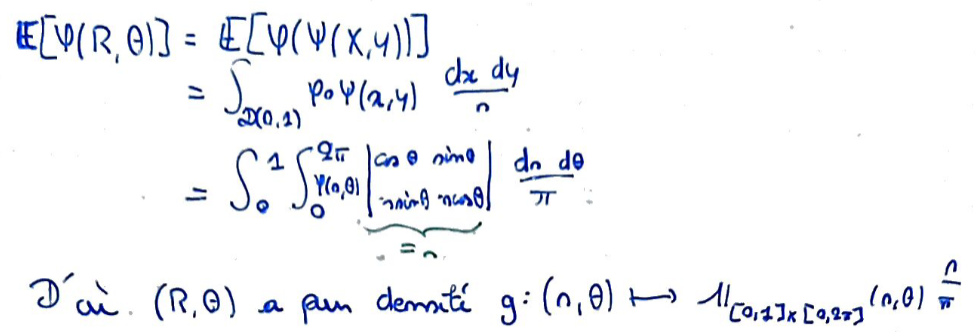 𝔼[φ(R, θ)] = 𝔼[φ(Ψ(X, Y))]
= ∫_{D(0,1)} φ∘Ψ(x, y) dx dy / π
= ∫_0^1 ∫_0^{2π} φ(r, θ) |cos θ sin θ
-r sin θ r cos θ| dr dθ / π
= r
D'où. (R, θ) a pour densité g : (r, θ) ⟼ 𝟙_{[0,1]×[0,2π]}(r, θ) r/π